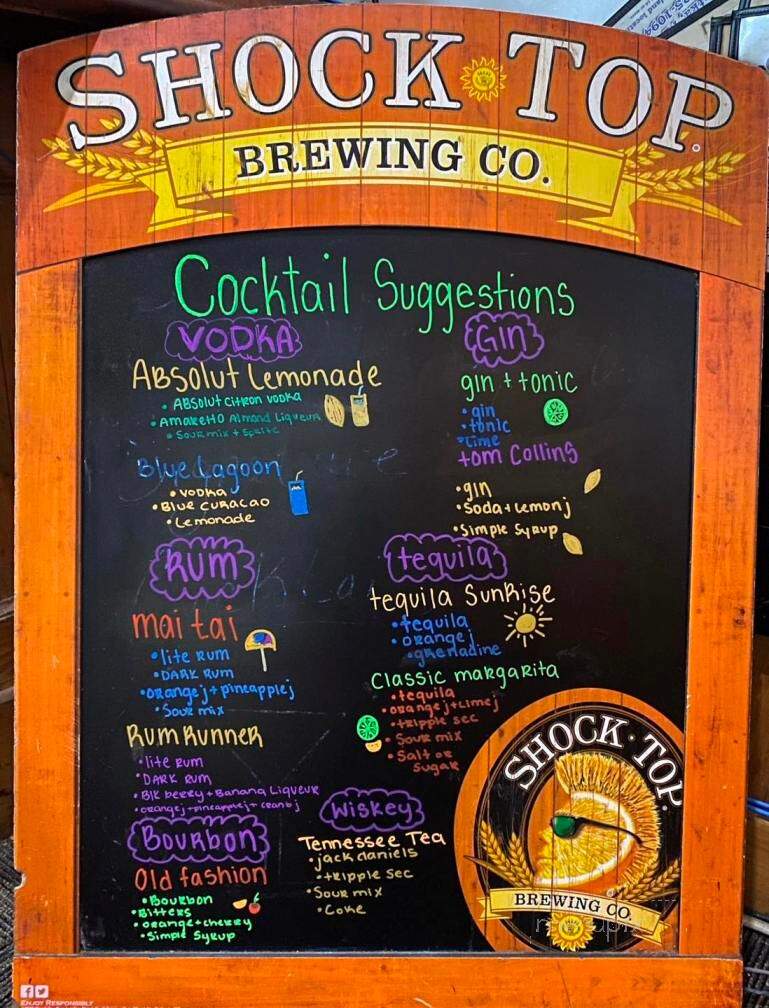 SHOCK TOP
BREWING CO.
Cocktail Suggestions
VODKA
Absolut Lemonade
• Absolut Citron vodka
• Amaretto Almond Liqueur
• Sour mix + Sprite
Blue Lagoon
• Vodka
• Blue curacao
• Lemonade
Rum
mai tai
• lite rum
• Dark rum
• orange j + pineapple j
• Sour mix
Rum Runner
• lite rum
• Dark rum
• Blk berry + Banana Liqueur
• orange j + pineapple j + cranb j
Bourbon
Old fashion
• Bourbon
• Bitters
• orange + cherry
• Simple Syrup
Gin
gin + tonic
• gin
• tonic
• lime
tom Collins
• gin
• Soda + lemon j
• Simple Syrup
tequila
tequila Sunrise
• tequila
• orange j
• grenadine
Classic margarita
• tequila
• orange j + Lime j
• tripple sec
• Sour mix
• Salt or
Sugar
Wiskey
Tennessee Tea
• jack daniels
• tripple Sec
• Sour mix
• Coke
SHOCK·TOP
BREWING CO.
Enjoy Responsibly